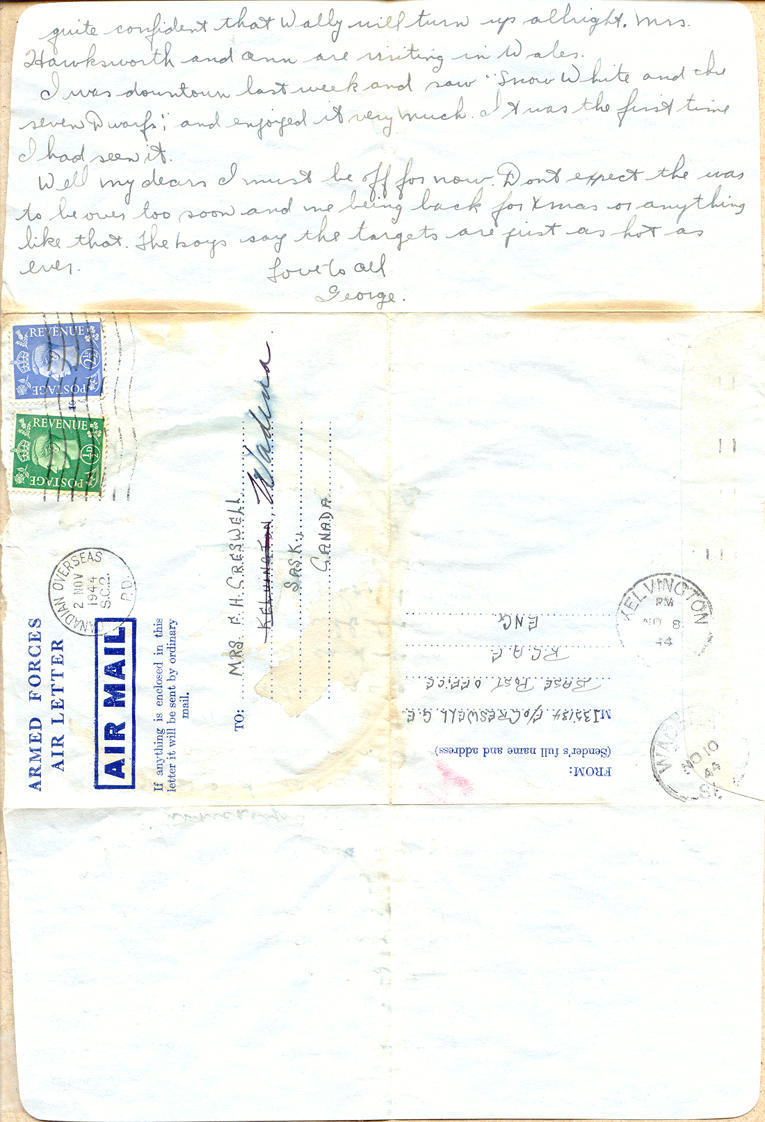 quite confident that Wally will turn up allright. Mrs.
Hawksworth and Ann are visiting in Wales.
I was downtown last week and saw "Snow White and the
seven Dwarfs", and enjoyed it very much. It was the first time
I had seen it.
Well my dears I must be off for now. Dont expect the war
to be over too soon and me being back for Xmas or anything
like that. The boys say the targets are just as hot as
ever.
Love to all
George.
REVENUE
2½D
POSTAGE
REVENUE
½D
POSTAGE
CANADIAN OVERSEAS
2 NOV
1944
S.C.2.
P.D.
ARMED FORCES
AIR LETTER
AIR MAIL
If anything is enclosed in this
letter it will be sent by ordinary
mail.
TO: MRS. F. H. CRESWELL
KELVINGTON, Wadena.
SASK.,
CANADA
FROM:
(Sender's full name and address)
F/O CRESWELL G.E.
BASE POST OFFICE
R.C.A.F.
ENG.
KELVINGTON
PM
NO 8
44
NO 10
44